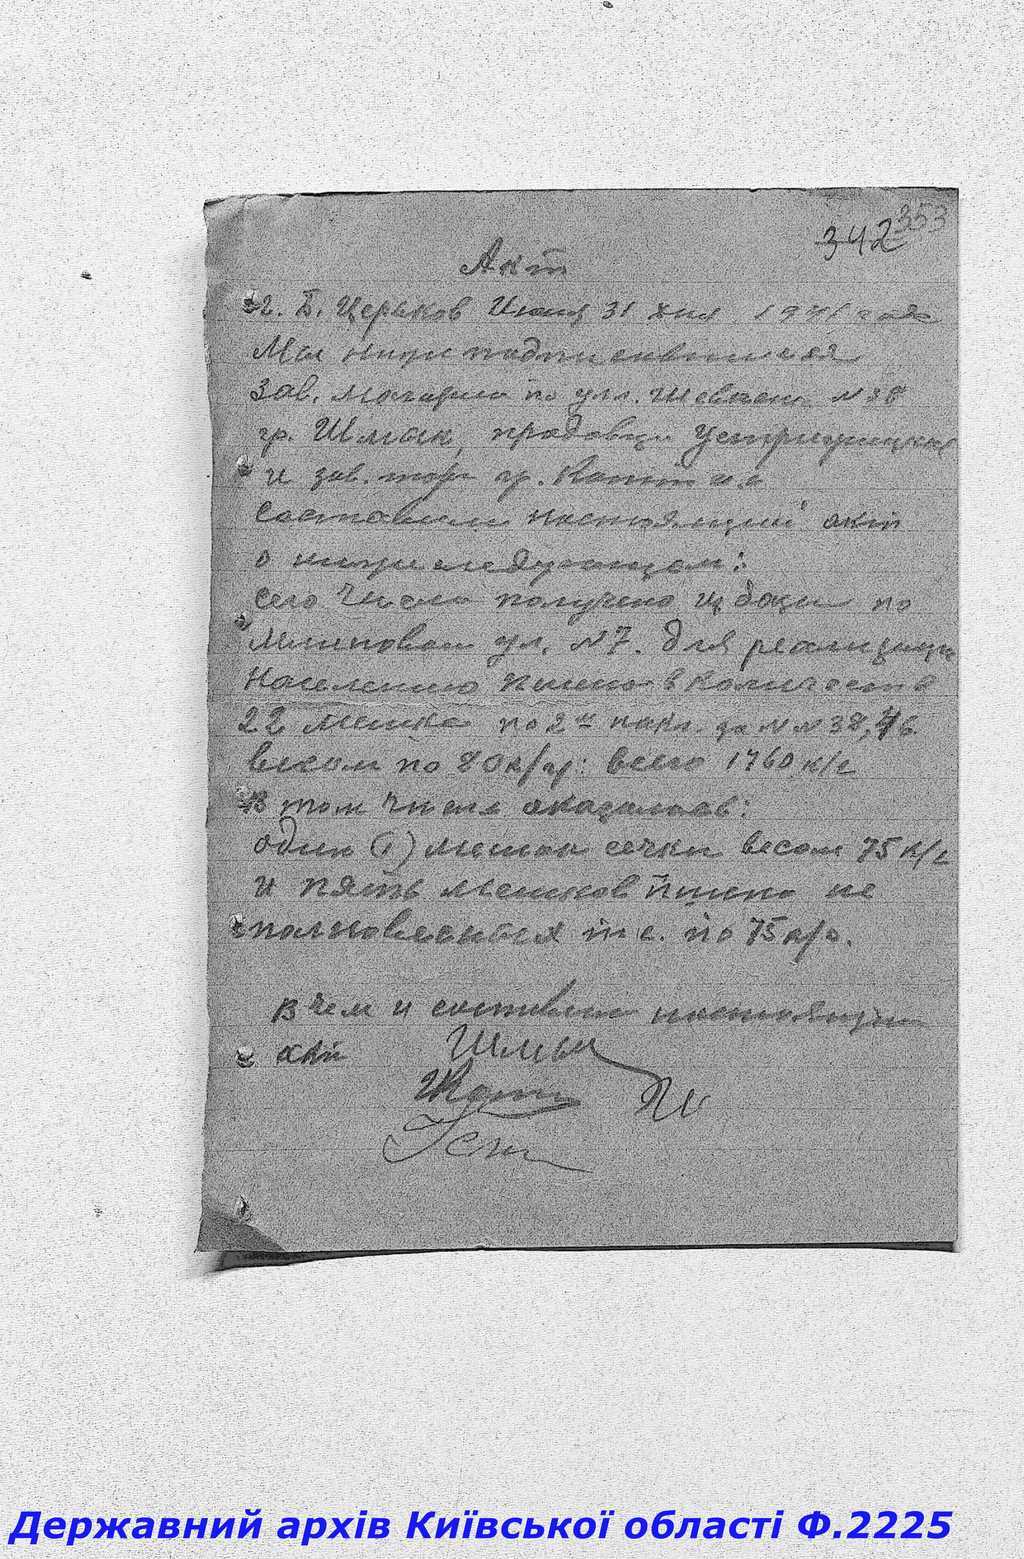 353
342
Акт
г. Б. Церьков Июля 31 дня 1941 года
Мы ниже подписавшиеся
зав. Магазин по ул. Шевчен. N 38
гр. Шмак, продавци
и зав. торг гр.
составили настоящий акт
о нижеследующем:
сего числа получено из базы по
ул. N7. для реализаци
Населению пшено в количестве
22 мешка по 2м накл. за N N 38,
весом по 80 к/гр: всего 1760 к/г
В том числе оказалось:
один (1) мешок сечки весом 75 к/г
и пять мешков пшено не
полновесных т е. по 75 к/г.
в чем и составлен настоящий
акт
Державний архів Київської області Ф.2225